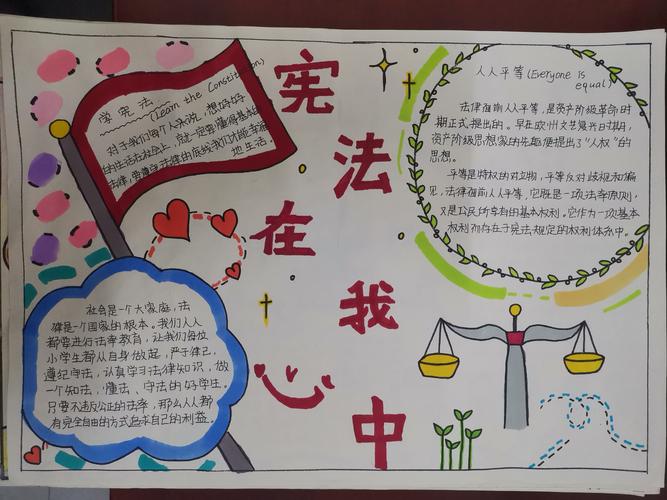 宪法在我心中
学宪法
(Learn the Constitution)
对于我们每个人来说，想好好
的生活在社会上，就一定要懂得基本的
法律，要遵守法律的底线我们才能幸福
地生活。
人人平等(Everyone is
equal)
法律面前人人平等，是资产阶级革命时
期正式提出的。早在欧州文艺复兴时期，
资产阶级思想家的先驱便提出了"人权"的
思想。
平等是特权的对立物，平等反对歧视和偏
见，法律面前人人平等，它既是一项法律原则，
又是公民所享有的基本权利。它作为一项基本
权利而存在于宪法规定的权利体系中。
社会是一个大家庭，法
律是一个国家的根本。我们人人
都要进行法律教育，让我们每位
小学生都从自身做起，严于律己，
遵纪守法，认真学习法律知识，做
一个知法，懂法、守法的好学生。
只要不违反公正的法律，那么人人都
有完全自由的方式追求自己的利益。